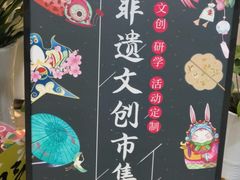 文创 研学 活动定制
非遗文创市集